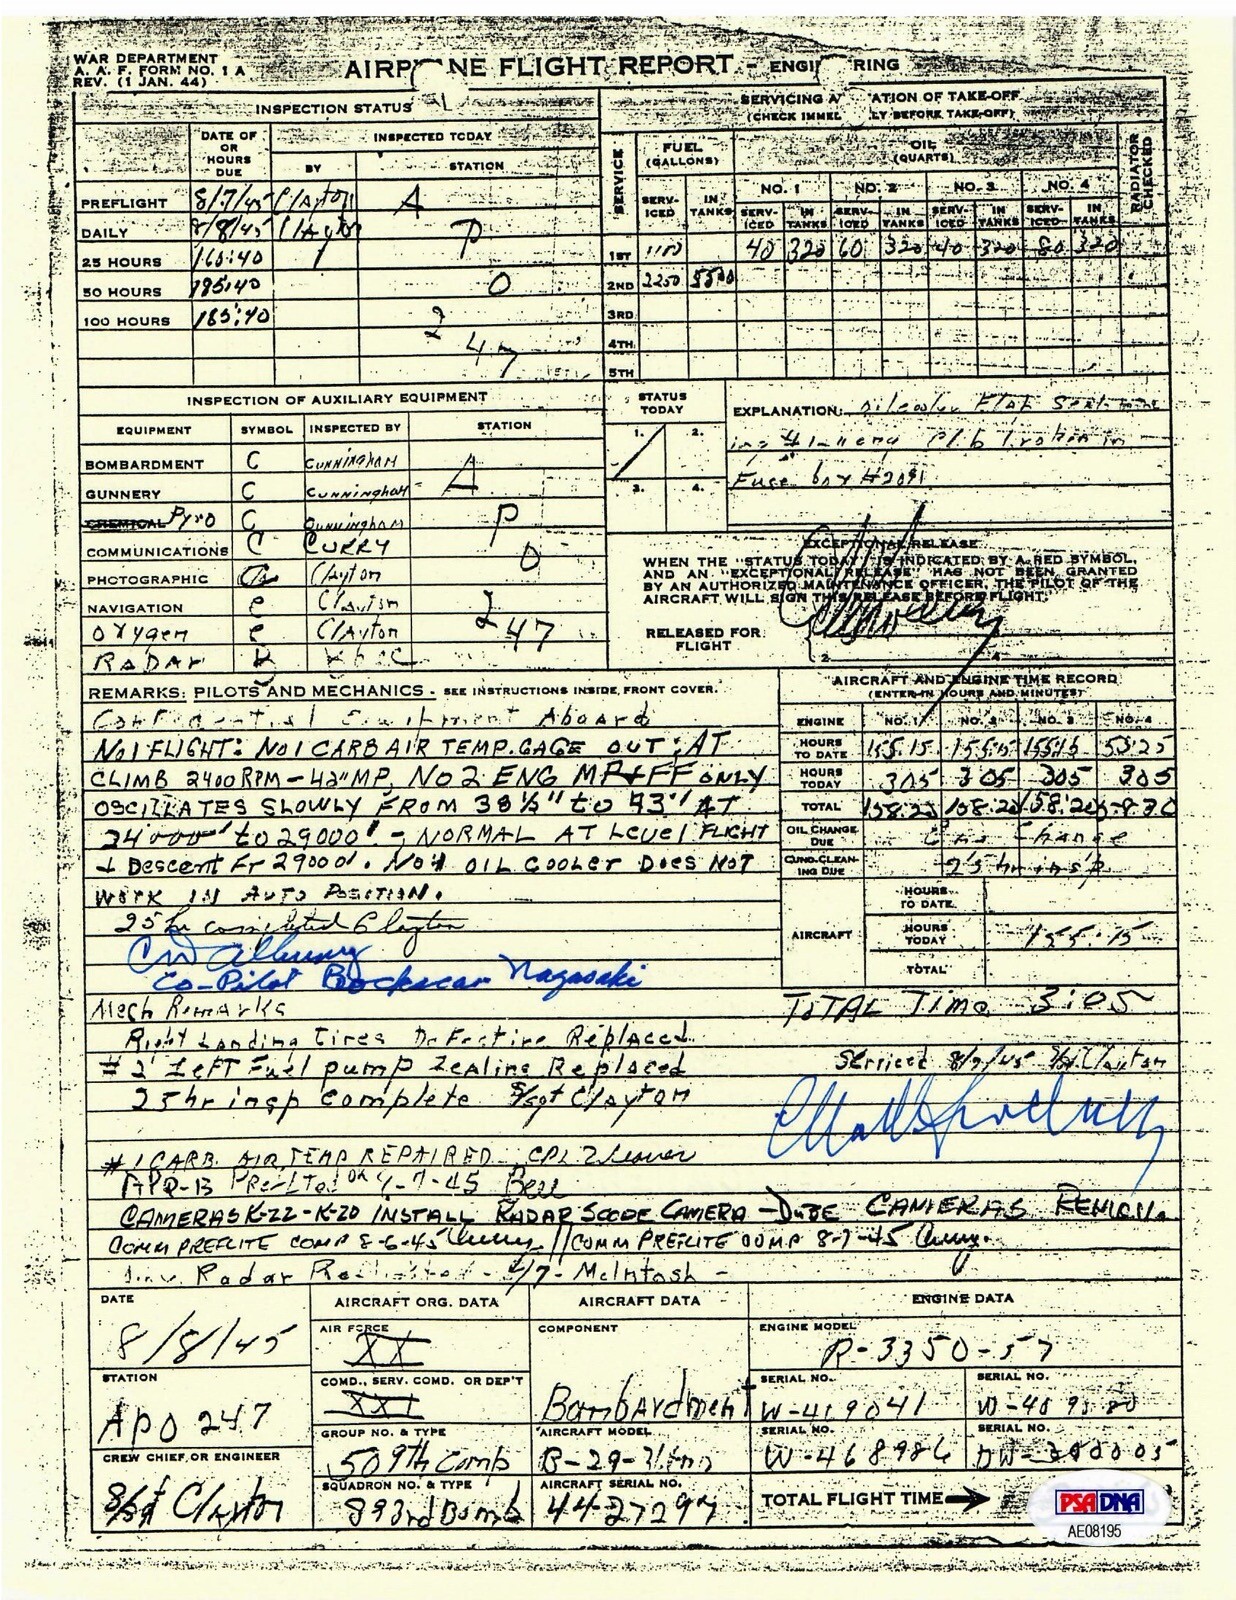 WAR DEPARTMENT
A. A. F. FORM NO. 1 A
REV. (1 JAN. 44)
AIRP NE FLIGHT REPORT - ENGI RING
INSPECTION STATUS
DATE OF OR HOURS DUE
INSPECTED TODAY
BY
STATION
PREFLIGHT 8/7/45 Clayton A
DAILY 8/8/45 Clayton P
25 HOURS 160:40
50 HOURS 185:40 O
100 HOURS 185:40 2
47
SERVICING A ATION OF TAKE-OFF
(CHECK IMMEL LY BEFORE TAKE-OFF)
SERVICE
FUEL (GALLONS)
OIL (QUARTS)
RADIATOR CHECKED
NO. 1 NO. 2 NO. 3 NO. 4
SERV-ICED IN TANKS SERV-ICED IN TANKS SERV-ICED IN TANKS SERV-ICED IN TANKS SERV-ICED IN TANKS
1ST 1100 40 320 60 320 40 320 80 320
2ND 2250 5500
3RD
4TH
5TH
INSPECTION OF AUXILIARY EQUIPMENT
EQUIPMENT SYMBOL INSPECTED BY STATION
BOMBARDMENT C CUNNINGHAM
GUNNERY C CUNNINGHAM A
CHEMICAL Pyro C CUNNINGHAM P
COMMUNICATIONS C CURRY O
PHOTOGRAPHIC Clayton
NAVIGATION C Clayton 2
OXYGEN C Clayton 47
RADAR
STATUS TODAY
1. 2.
3. 4.
EXPLANATION:
in
Fuse box #2091
EXCEPTIONAL RELEASE
WHEN THE "STATUS TODAY" IS INDICATED BY A RED SYMBOL,
AND AN "EXCEPTIONAL RELEASE" HAS NOT BEEN GRANTED
BY AN AUTHORIZED MAINTENANCE OFFICER, THE PILOT OF THE
AIRCRAFT WILL SIGN THIS RELEASE BEFORE FLIGHT.
RELEASED FOR FLIGHT
2 4
REMARKS: PILOTS AND MECHANICS - SEE INSTRUCTIONS INSIDE, FRONT COVER.
Confidential Equipment Aboard
NO 1 FLIGHT: NO 1 CARB AIR TEMP. GAGE OUT; AT
CLIMB 2400 RPM - 42" MP. NO 2 ENG MP + FF ONLY
OSCILLATES SLOWLY FROM 38 1/2" to 43" AT
24000' to 29000' - NORMAL AT LEVEL FLIGHT
+ Descent Fr 29000'. NO 4 OIL COOLER DOES NOT
WORK IN AUTO POSITION.
25 hr completed Clayton
Co-Pilot Bockscar Nagasaki
AIRCRAFT AND ENGINE TIME RECORD
(ENTER IN HOURS AND MINUTES)
ENGINE NO. 1 NO. 2 NO. 3 NO. 4
HOURS TO DATE 155:15 155:15 155:15 55:25
HOURS TODAY 3:05 3:05 3:05 3:05
TOTAL 158:20 158:20 158:20
OIL CHANGE DUE Change
CUNO-CLEANING DUE 25 hr insp.
AIRCRAFT
HOURS TO DATE
HOURS TODAY 155:15
TOTAL
TOTAL Time 3:05
Mech Remarks
Right Landing Tires Defective Replaced
#2 Left Fuel pump Replaced
25 hr insp complete S/Sgt Clayton
Serviced 8/7/45 S/Sgt Clayton
#1 CARB. AIR TEMP REPAIRED. CPL.
APQ-13 Bell
CAMERAS K-22 - K-20 INSTALL RADAR SCOPE CAMERA - CAMERAS
COMM PREFLITE COMP 8-6-45 Curry // COMM PREFLITE COMP 8-7-45 Curry.
Radar 8/7 - McIntosh -
DATE
8/8/45
STATION
APO 247
CREW CHIEF OR ENGINEER
S/Sgt Clayton
AIRCRAFT ORG. DATA
AIR FORCE
XX
COMD., SERV. COMD. OR DEP'T
XXI
GROUP NO. & TYPE
509th Comp
SQUADRON NO. & TYPE
393rd Bomb
AIRCRAFT DATA
COMPONENT
Bombardment
AIRCRAFT MODEL
B-29-
AIRCRAFT SERIAL NO.
44-27297
ENGINE DATA
ENGINE MODEL
R-3350-57
SERIAL NO. SERIAL NO.
W-469041
SERIAL NO. SERIAL NO.
W-468986
TOTAL FLIGHT TIME
PSA DNA
AE08195